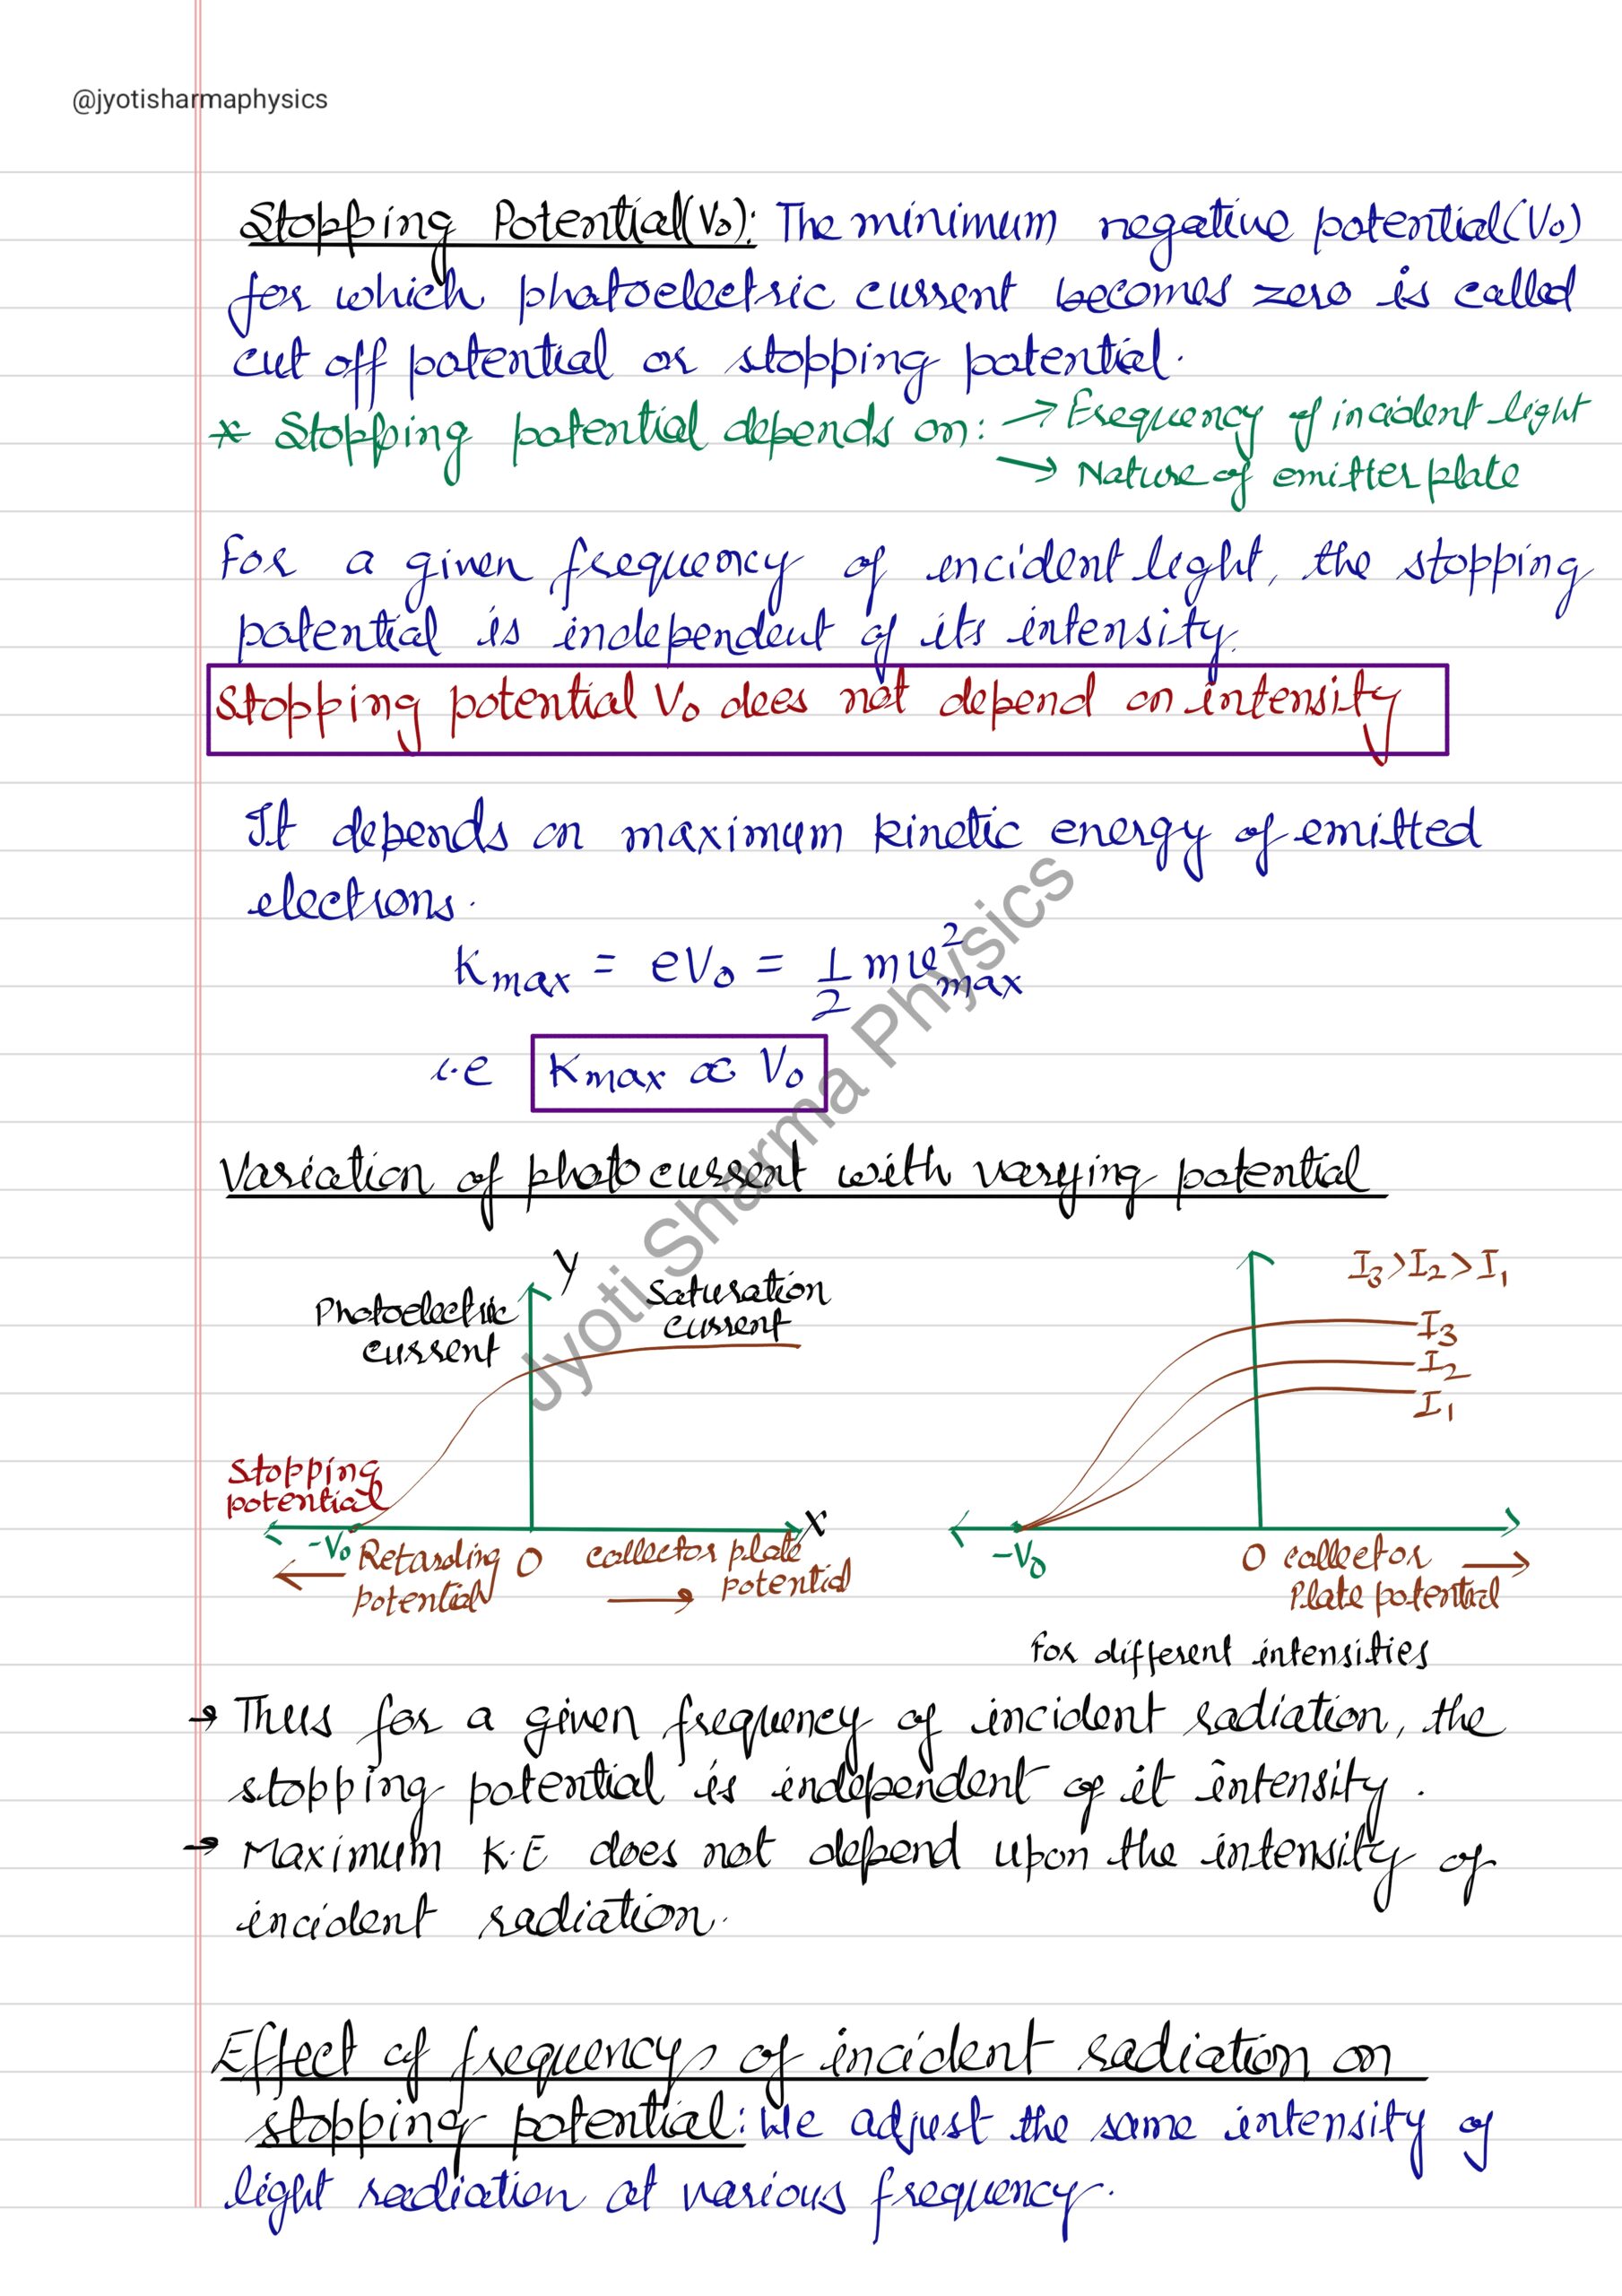 @jyotisharmaphysics
Stopping Potential(V₀): The minimum negative potential(V₀)
for which photoelectric current becomes zero is called
cut off potential or stopping potential.
* Stopping potential depends on: → Frequency of incident light
→ Nature of emitter plate
For a given frequency of incident light, the stopping
potential is independent of its intensity.
Stopping potential V₀ does not depend on intensity
It depends on maximum kinetic energy of emitted
electrons.
Kmax = eV₀ = 1/2 mv²max
i.e Kmax ∝ V₀
Variation of photocurrent with varying potential
Y
Photoelectric
current
Saturation
current
Stopping
potential
X
-V₀
Retarding
potential
O
collector plate
potential
I₃>I₂>I₁
I₃
I₂
I₁
-V₀
O collector
Plate potential
For different intensities
→ Thus for a given frequency of incident radiation, the
stopping potential is independent of it intensity.
→ Maximum K.E does not depend upon the intensity of
incident radiation.
Effect of frequency of incident radiation on
stopping potential: We adjust the same intensity of
light radiation at various frequency.
Jyoti Sharma Physics